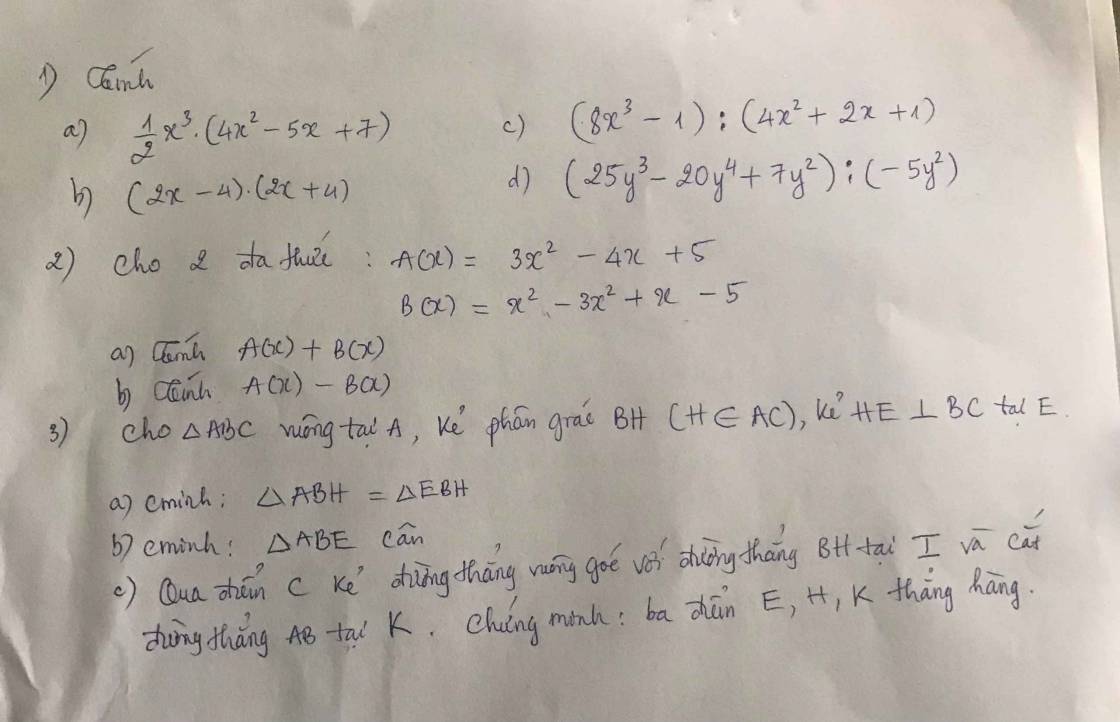 1) Tính
a) 1/2 x³.(4x² - 5x + 7)
b) (2x - 4).(2x + 4)
c) (8x³ - 1) : (4x² + 2x + 1)
d) (25y³ - 20y⁴ + 7y²) : (-5y²)
2) Cho 2 đa thức : A(x) = 3x² - 4x + 5
B(x) = x² - 3x² + x - 5
a) Tính A(x) + B(x)
b) Tính A(x) - B(x)
3) Cho △ABC vuông tại A, kẻ phân giác BH (H ∈ AC), kẻ HE ⊥ BC tại E.
a) cminh: △ABH = △EBH
b) cminh: △ABE cân
c) Qua điểm C kẻ đường thẳng vuông góc với đường thẳng BH tại I và cắt
đường thẳng AB tại K. Chứng minh: ba điểm E, H, K thẳng hàng.